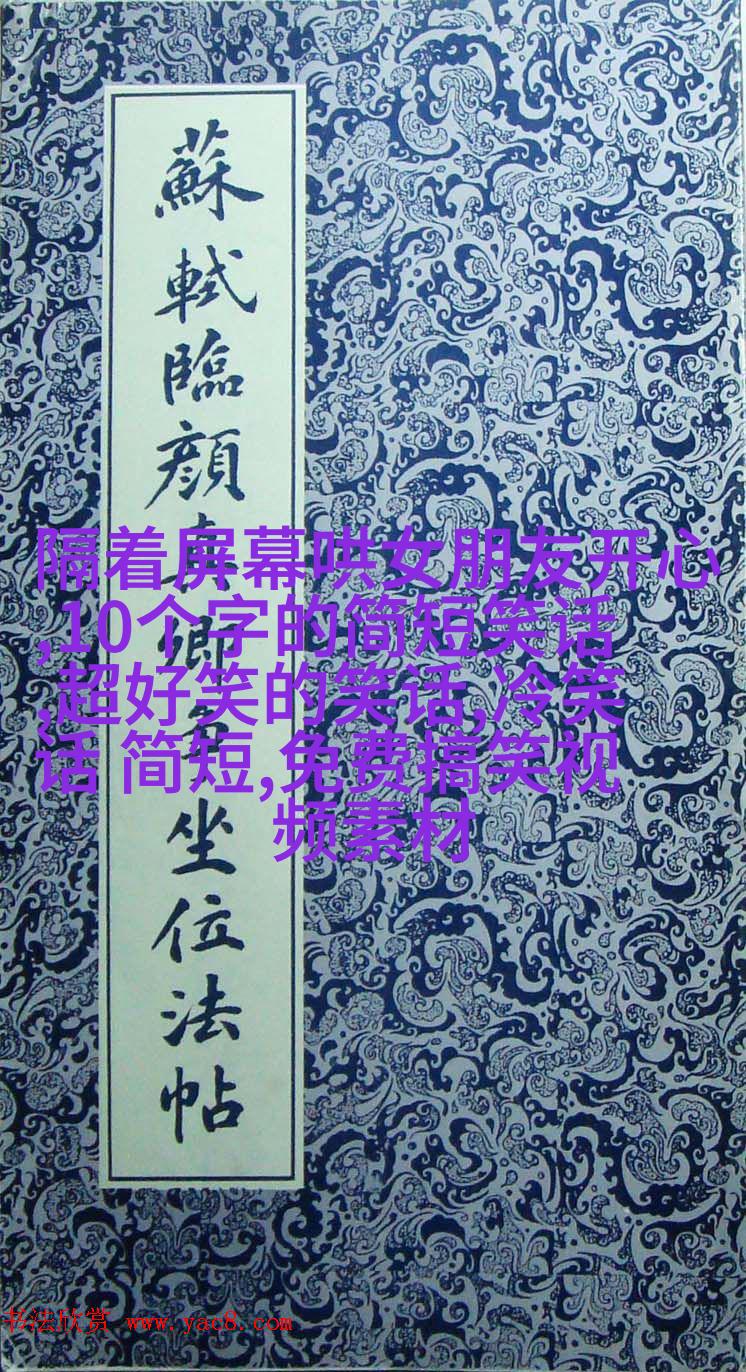 蘇軾臨顔真卿争坐位法帖
隔着屏幕哄女朋友开心
,10个字的简短笑话
,超好笑的笑话,冷笑
话 简短,免费搞笑视
频素材
书法欣赏 www.yac8.com